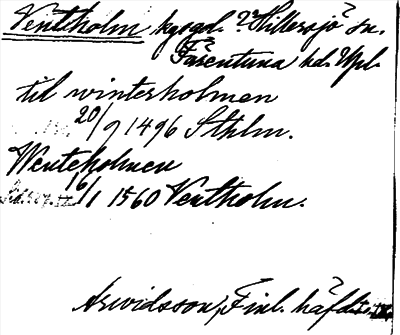 Ventholm bygd. ? Hillersjö ? sn.
Färentuna hd. Upl.
til winterholmen
20/9 1496 Sthlm.
Wenteholmen
16/1 1560 Ventholm.
Arwidsson, Finl. häfd.